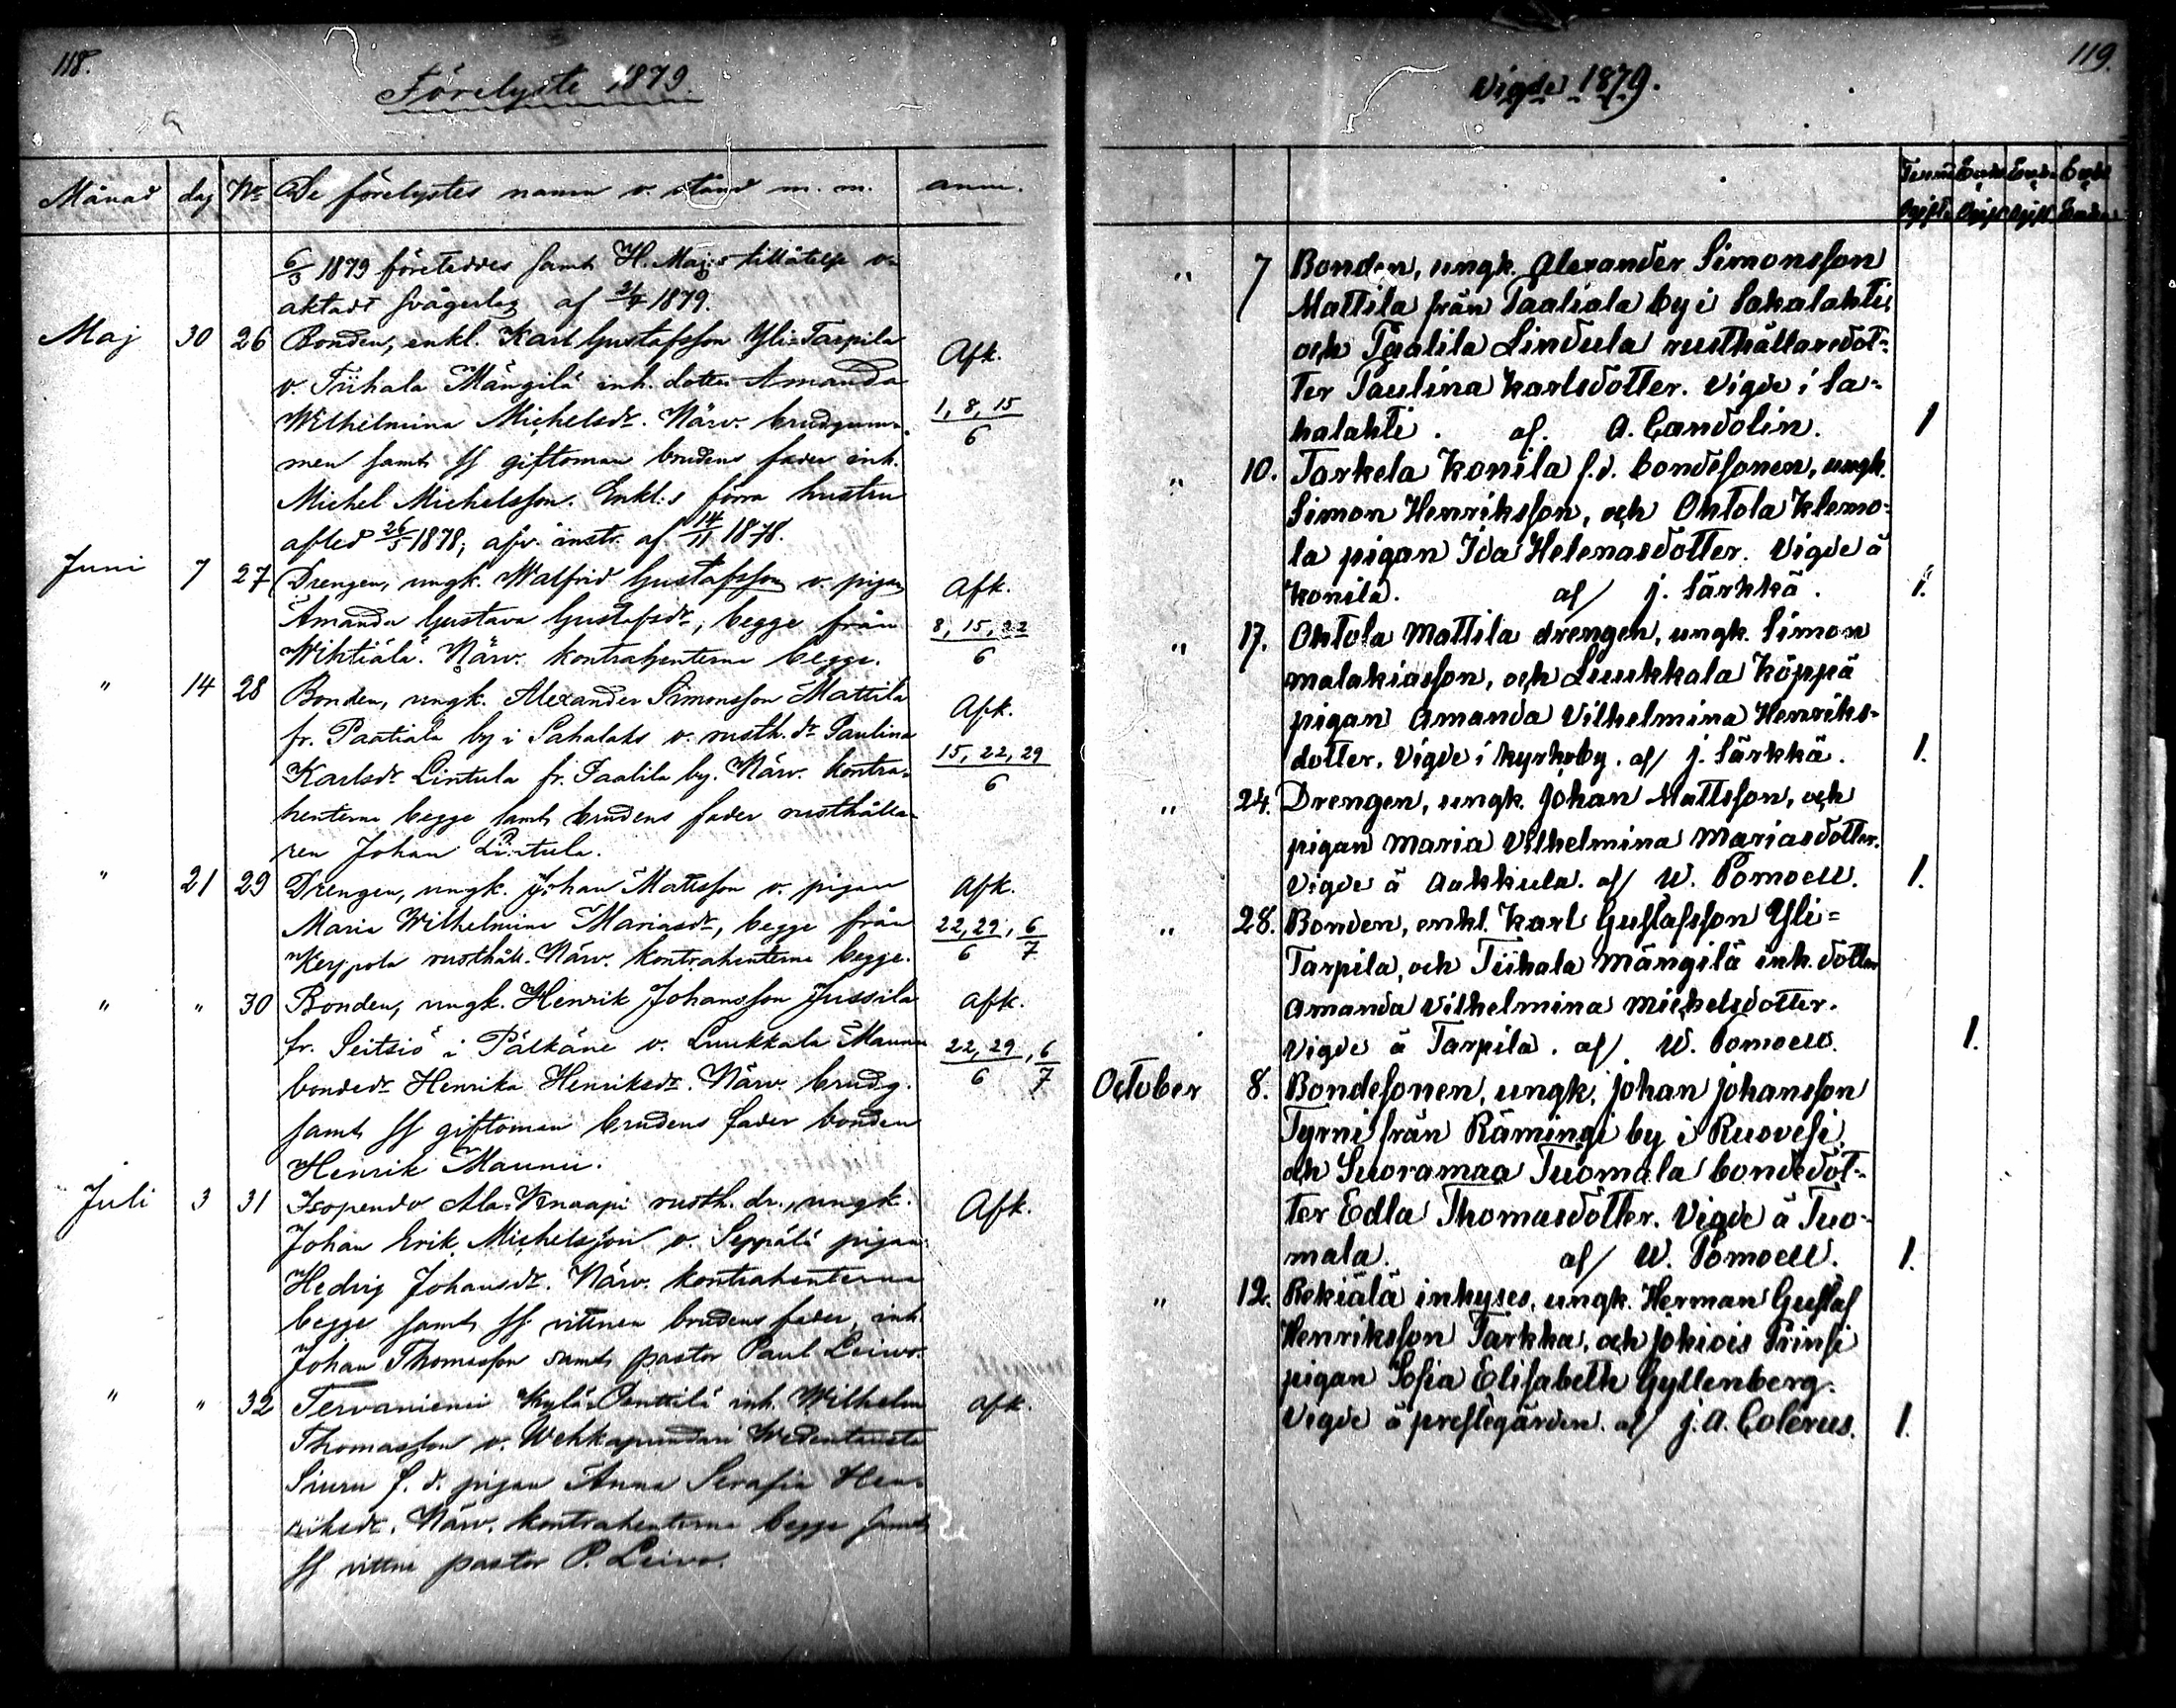 118.
Förelyste 1879.
Månad dag No De förelystes namn o. stånd m. m. anm.
6/3 1879 företeddes samt H. Maj:s tillåtelse o-
aktadt svågerlag af 21/4 1879.
Maj 30 26 Bonden, enkl. Karl Gustafsson Yli-Tarpila Afk.
o. Tiihala Mängilä inh. dotter Amanda
Wilhelmina Michelsdr. Närv. brudgum- 1, 8, 15/6
men samt ss giftoman brudens fader inh.
Michel Michelsson. Enkl:s förra hustru
afled 26/5 1878; afv. instr. af 14/11 1878.
Juni 7 27 Drengen, ungk. Walfrid Gustafsson o. pigan Afk.
Amanda Gustava Gustafsdr, begge från 8, 15, 22/6
Wihtiälä. Närv. kontrahenterna begge.
" 14 28 Bonden, ungk. Alexander Simonsson Mattila Afk.
fr. Paatiala by i Sahalaks o. rusth. dr Paulina
Karlsdr Lintula fr. Taalila by. Närv. kontra- 15, 22, 29/6
henterna begge samt brudens fader rusthålla-
ren Johan Lintula.
" 21 29 Drengen, ungk. Johan Matsson o. pigan Afk.
Maria Wilhelmina Mariasdr, begge från 22, 29/6, 6/7
Keypola rusthåll. Närv. kontrahenterna begge.
" " 30 Bonden, ungk. Henrik Johansson Jussila Afk.
fr. Seitsiö i Pälkäne o. Luukkala Maunu 22, 29/6, 6/7
bondedr Henrika Henriksdr. Närv. brudg.
samt ss giftoman brudens fader bonden
Henrik Maunu.
Juli 3 31 Isopendo Ala-Knaapi rusth. dr., ungk. Afk.
Johan Erik Michelsson o. Seppälä pigan
Hedvig Johansdr. Närv. kontrahenterna
begge samt ss vittnen brudens fader, inh.
Johan Thomasson samt pastor Paul Leivo.
" " 32 Tervaniemi Kylä-Penttilä inh. Wilhelm Afk.
Thomasson o. Wehkapundari Wedentausta
Siuru f. d. pigan Anna Serafia Hen-
riksdr. Närv. kontrahenterna begge samt
ss vittne pastor P. Leivo.
119.
Vigde 1879.
" 7 Bonden, ungk. Alexander Simonsson
Mattila från Paatiala by i Sahalahti
och Taalila Lindula rusthållaredot-
ter Paulina Karlsdotter. Vigde i Sa-
halahti. af. A. Candolin. 1
" 10. Tarkela Konila f.d. bondesonen, ungk.
Simon Henriksson, och Ohtola Klemo-
la pigan Ida Helenasdotter. Vigde å
Konila. af J. Särkkä. 1.
" 17. Ohtola Mattila drengen, ungk. Simon
Malakiasson, och Luukkala Käppä
pigan Amanda Vilhelmina Henriks-
dotter. Vigde i Kyrkoby. af J. Särkkä. 1.
" 24. Drengen, ungk. Johan Mattsson, och
pigan Maria Vilhelmina Mariasdotter.
Vigde å Aakkula. af W. Pomoell. 1.
" 28. Bonden, enkl. Karl Gustafsson Yli-
Tarpila, och Tiihala Mängilä inh. dotter
Amanda Vilhelmina Michelsdotter.
Vigde å Tarpila. af W. Pomoell. 1.
October 8. Bondesonen, ungk. Johan Johansson
Tyrni från Rämingi by i Ruovesi
och Suoramaa Tuomala bondedot-
ter Edla Thomasdotter. Vigde å Tuo-
mala. af W. Pomoell. 1.
" 12. Rekiälä inhyses, ungk. Herman Gustaf
Henriksson Tarkka, och Jokiois Prinsi
pigan Sofia Elisabeth Gyllenberg.
Vigde å prestegården. af J. A. Colerus. 1.